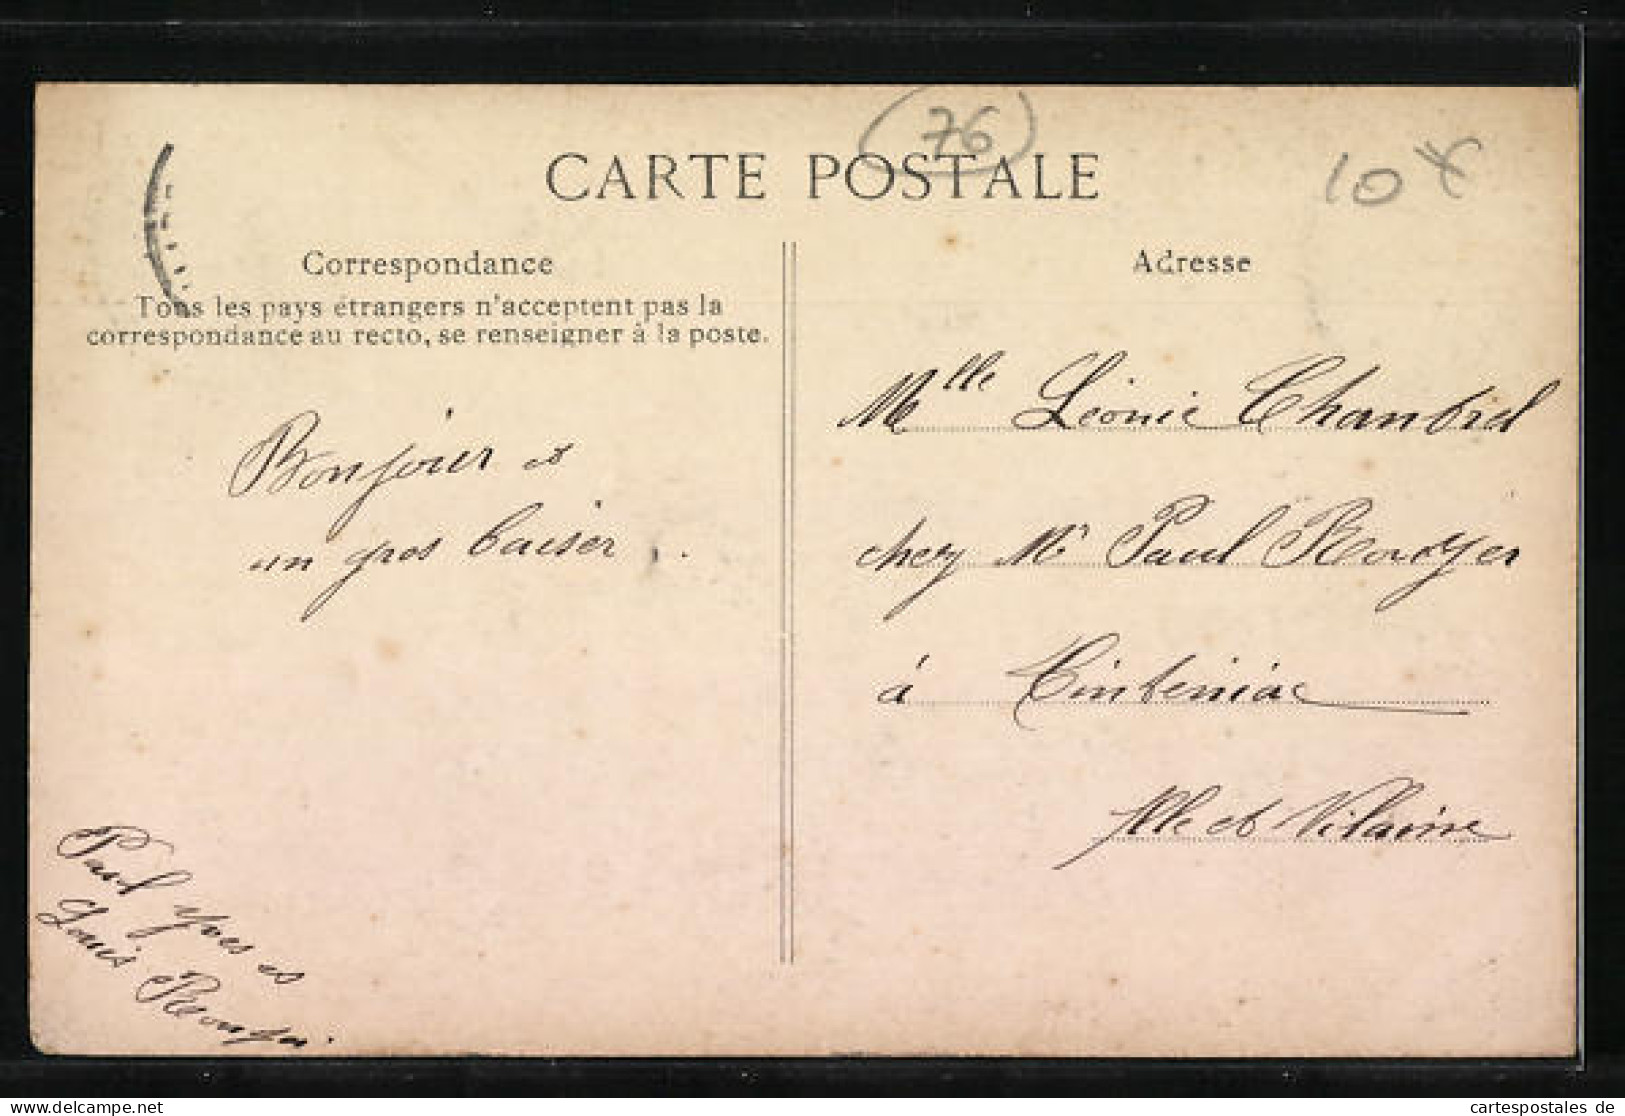 (76)
10€
CARTE POSTALE
Correspondance
Tous les pays étrangers n'acceptent pas la
correspondance au recto, se renseigner à la poste.
Bonjour et
un gros baiser.
Paul Yves et
Louis
Adresse
Mlle Léonie Chantrel
chez Mr Paul
à Tinténiac
Ille et Vilaine
Delcampe.net
cartespostales de